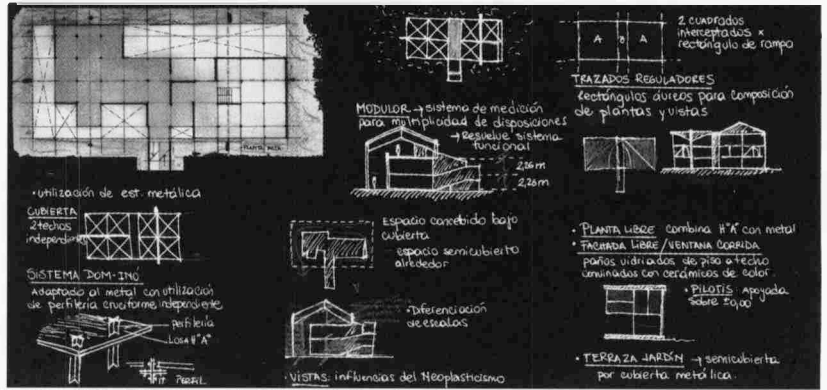 PLANTA BAJA
• utilización de est. metálica
CUBIERTA
2 techos
independientes
SISTEMA DOM-INO
Adaptado al metal con utilización
de perfilería cruciforme, independiente
perfilería
LOSA HºAº
PERFIL
MODULOR → sistema de medición
para multiplicidad de disposiciones
→ Resuelve sistema
funcional
2,26m
2,26m
Espacio concebido bajo
cubierta
espacio semicubierto
alrededor
• Diferenciación
de escalas
• VISTAS: influencias del Neoplasticismo
A B A
2 CUADRADOS
interceptados x
rectángulo de rampa
TRAZADOS REGULADORES
Rectángulos áureos para composición
de plantas y vistas
• PLANTA LIBRE combina HºAº con metal
• FACHADA LIBRE/VENTANA CORRIDA
paños vidriados de piso a techo
combinados con cerámicos de color.
• PILOTIS apoyada
sobre ±0,00
• TERRAZA JARDÍN → semicubierta
por cubierta metálica.